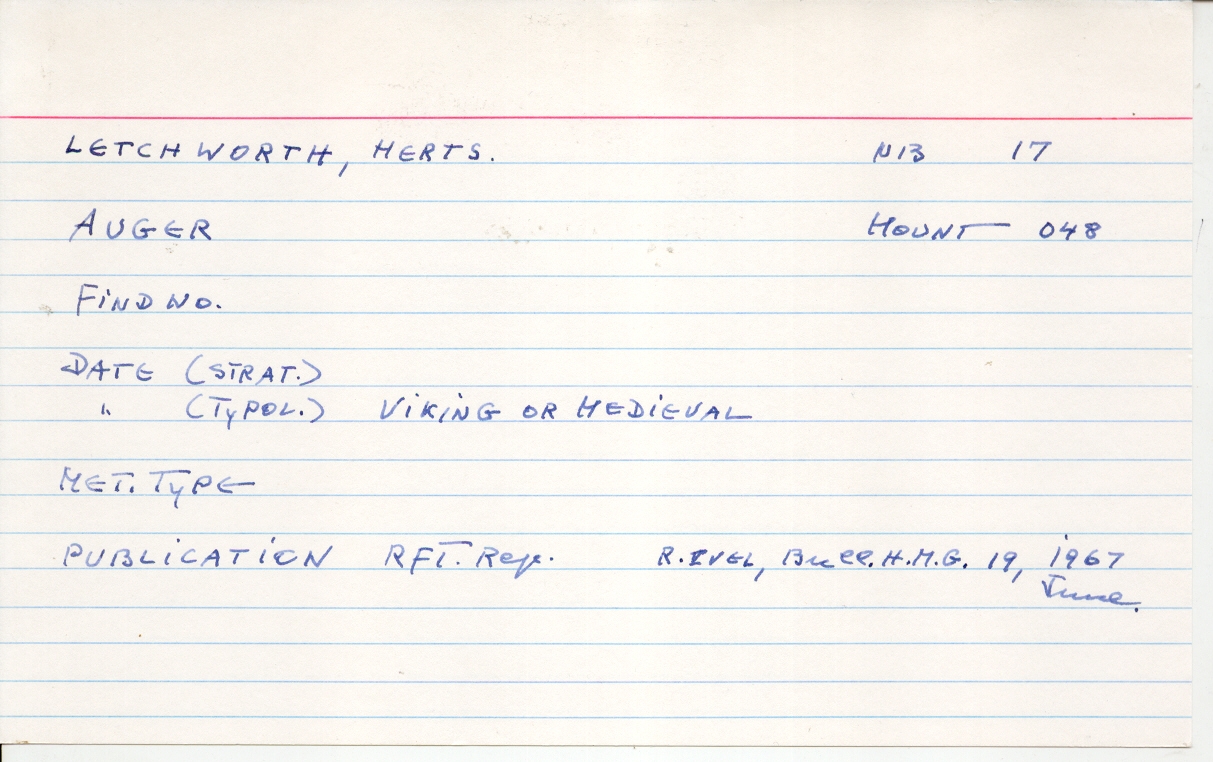 LETCHWORTH, HERTS. N13 17
AUGER MOUNT 048
FIND NO.
DATE (STRAT.)
" (TYPOL.) VIKING OR MEDIEVAL
MET. TYPE
PUBLICATION RFT. Rep. R. IVEL, Bull. H.M.G. 19, 1967
June.